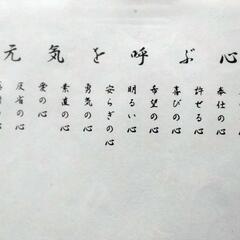 元気を呼ぶ心
奉仕の心
許せる心
喜びの心
希望の心
明るい心
安らぎの心
勇気の心
素直の心
愛の心
反省の心